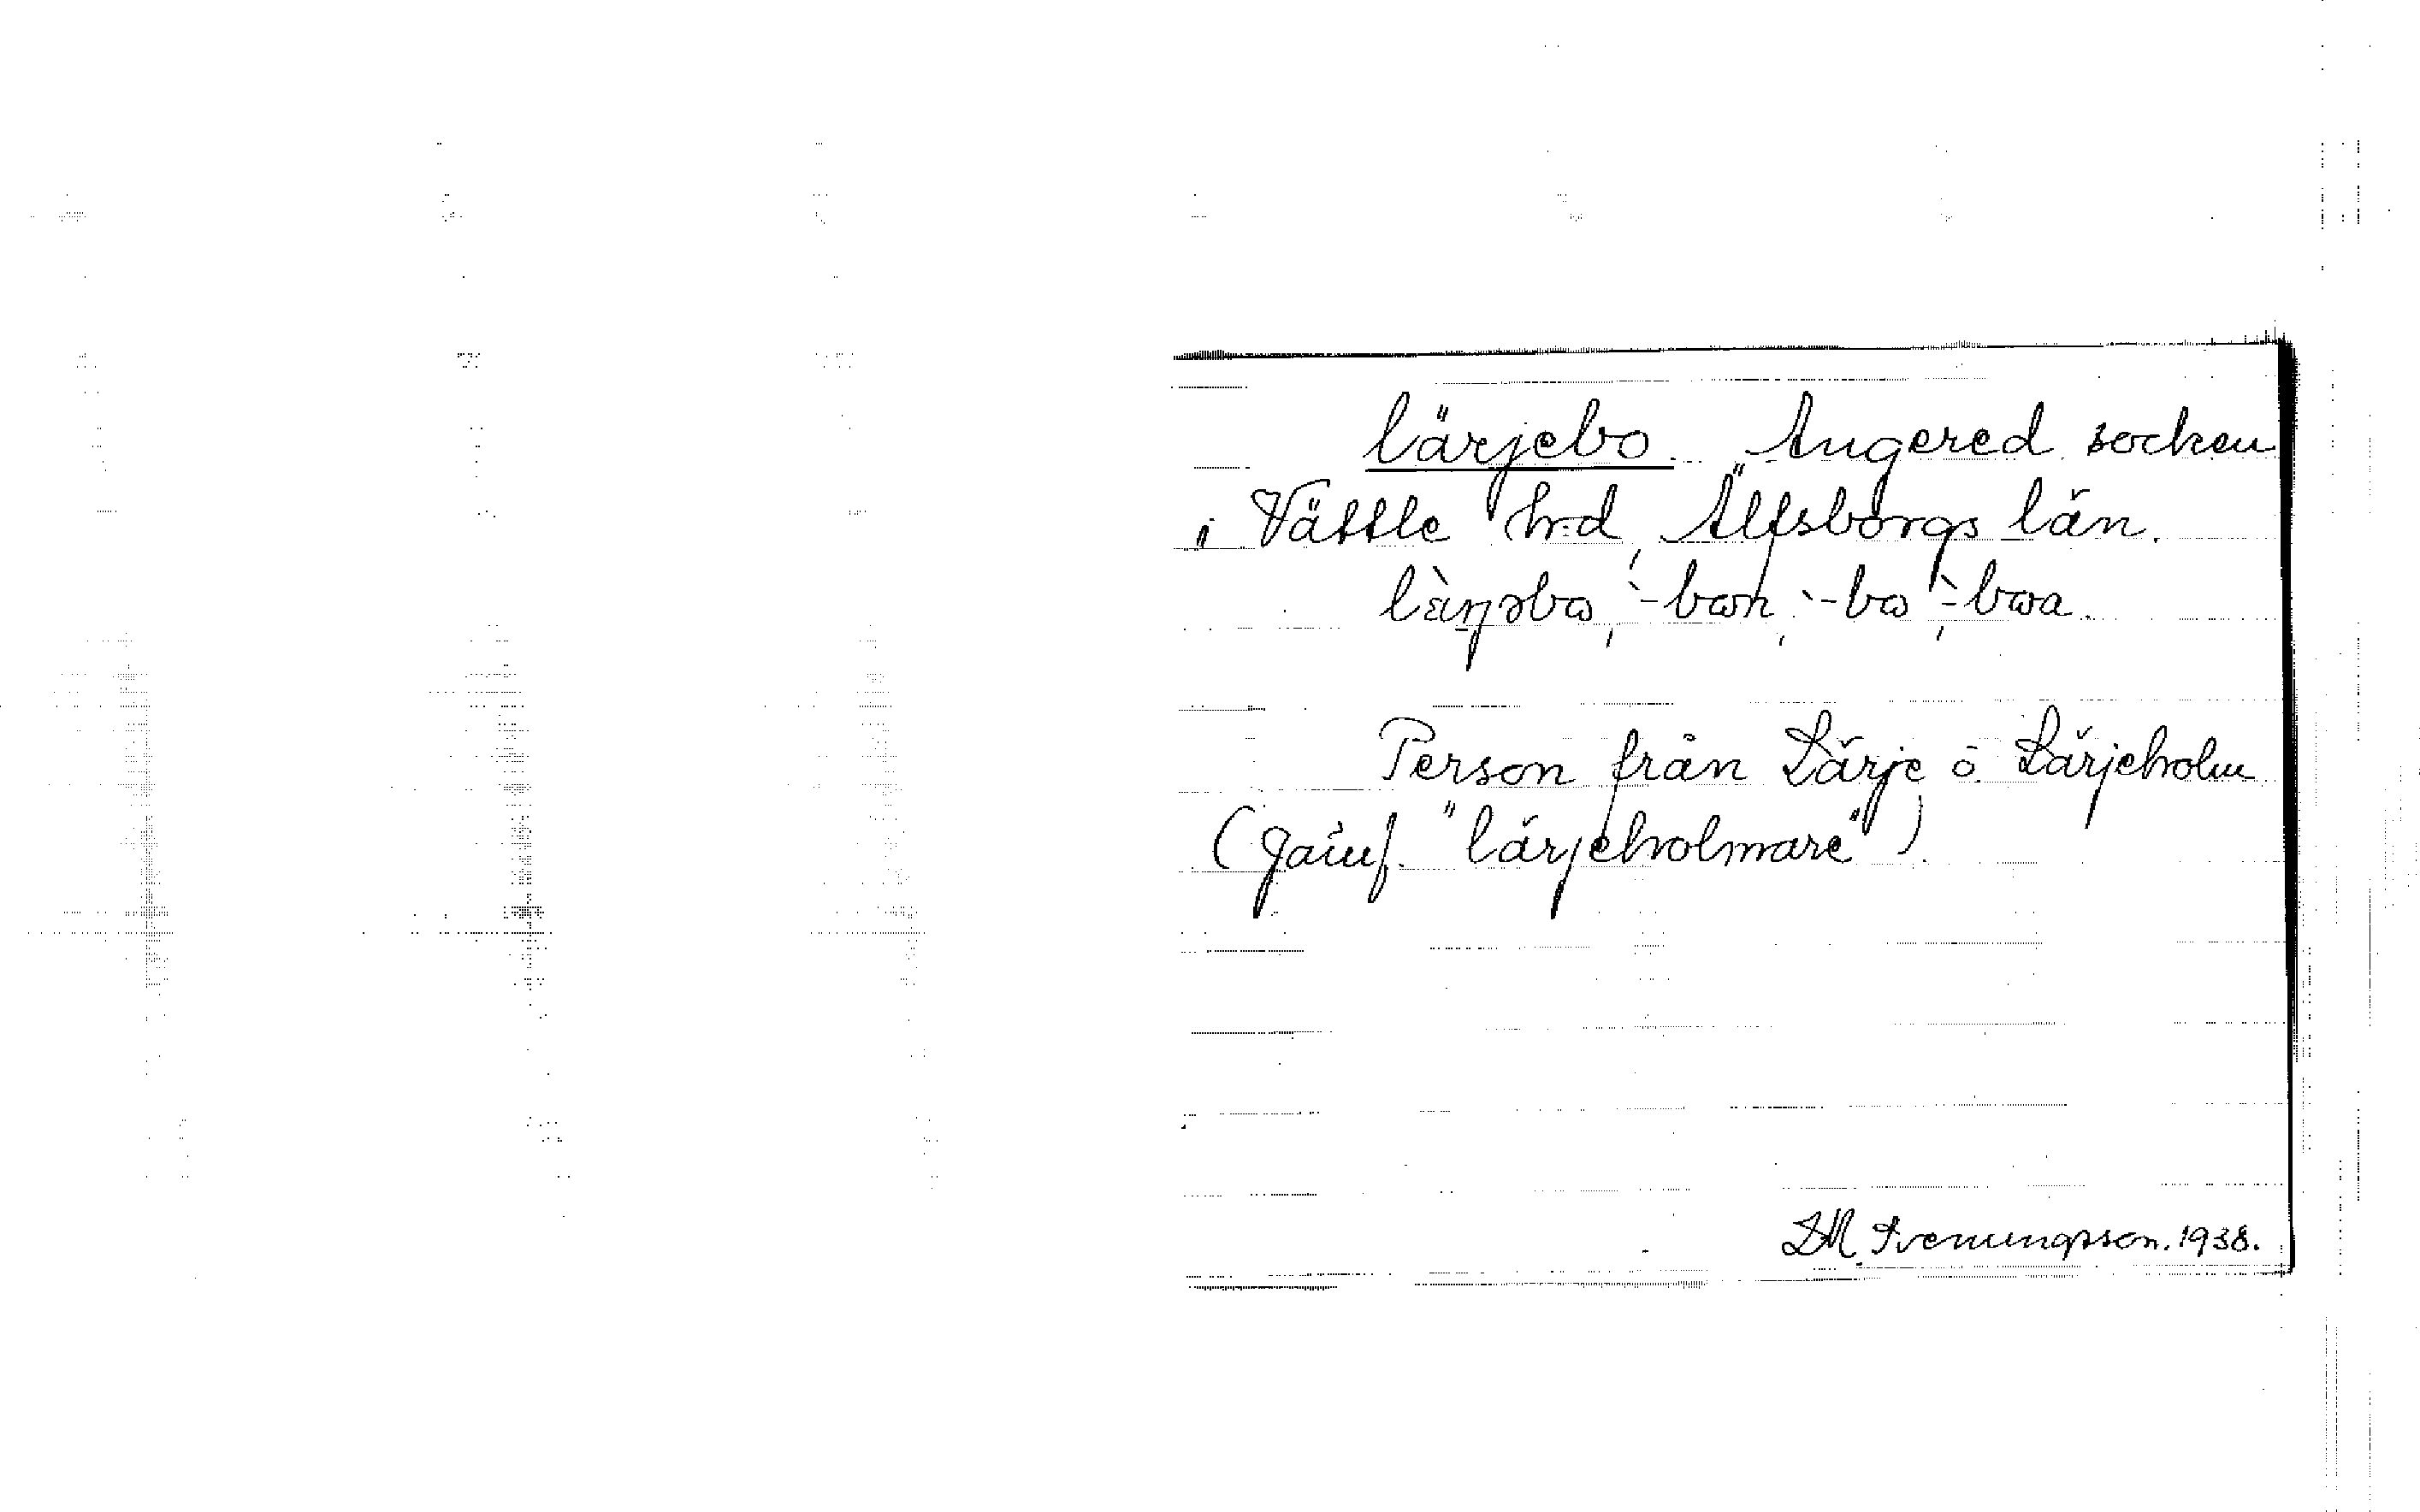 lärjebo. Angered socken
i Vättle h-d, Älfsborgs län.
Person från Lärje o. Lärjeholm
(jämf. "lärjeholmare")
Svenungsson. 1938.